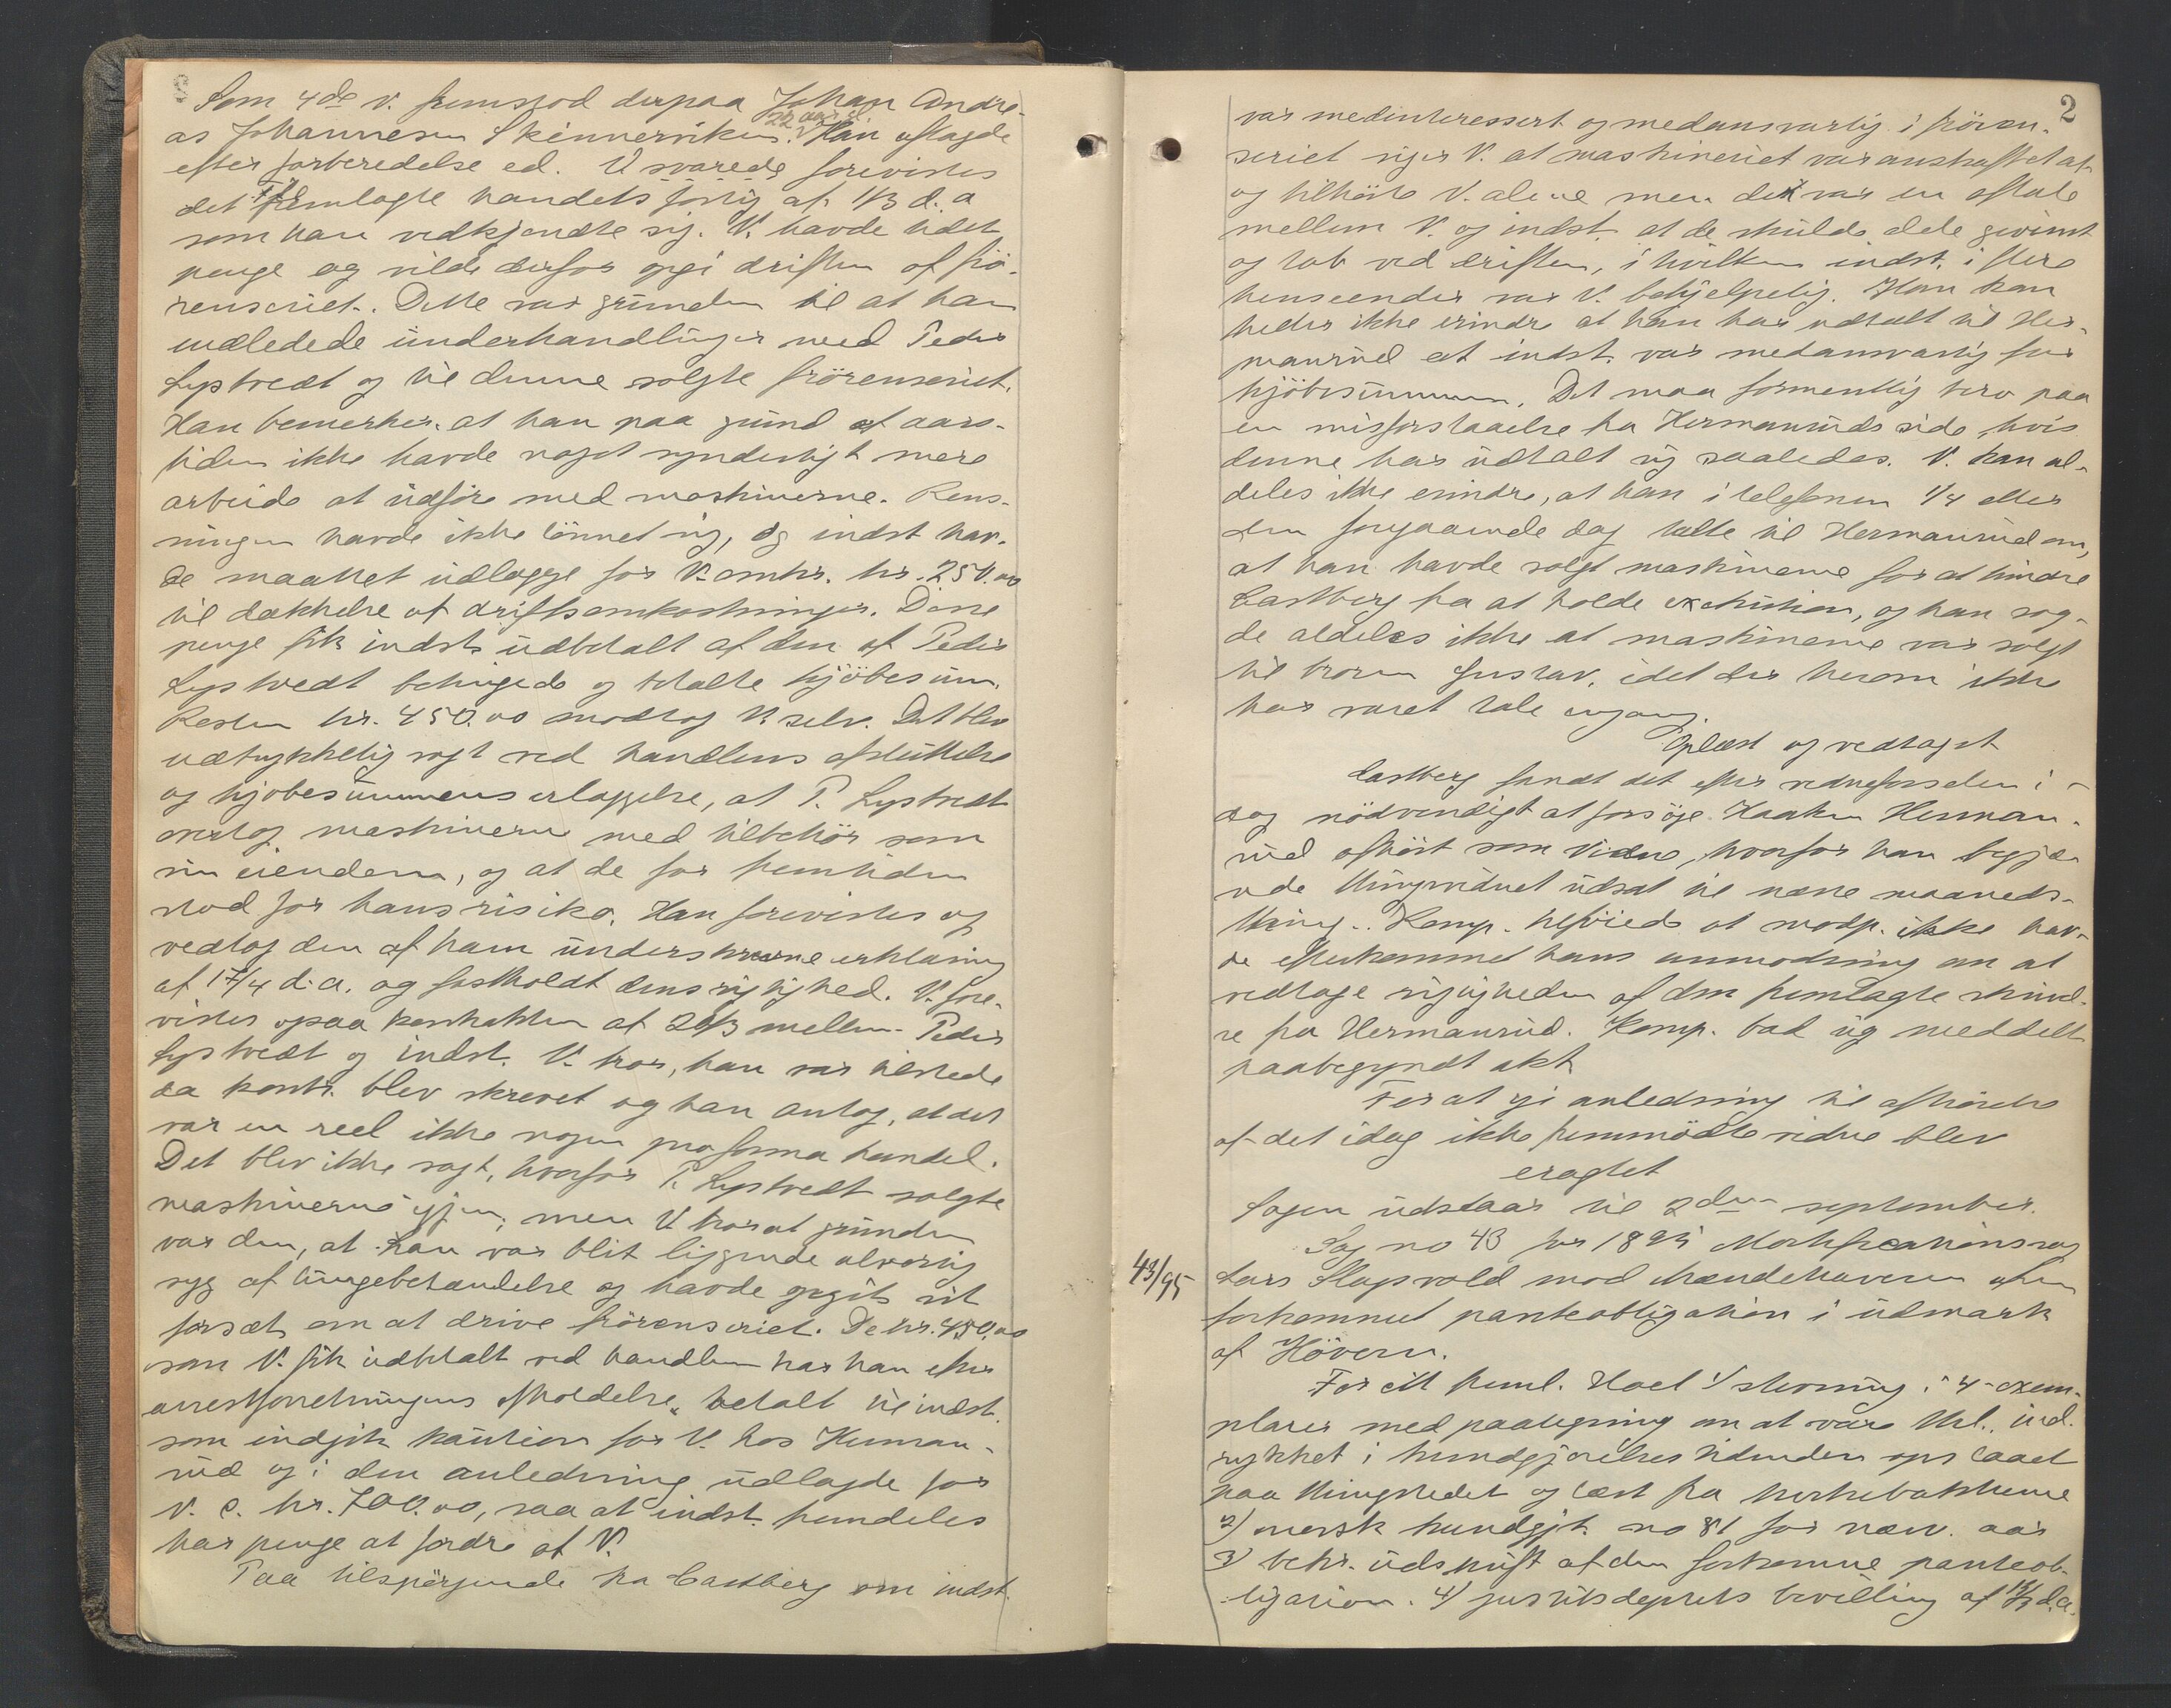 Som 4de v. fremstod derpaa Johan Andre-
as Johannesen Skinnerviken. 22 aar gl. Han aflagde
efter forberedelse ed. V svarede forevistes
det fremlagte handelsforlig af 1/3 d. a
som han vedkjendte sig. V. havde tabt
penge og vilde derfor opgi driften af frö-
renseriet. Dette var grunden til at han
indledede underhandlinger med Peder
Lystvedt og til denne solgte frörenseriet.
Han bemerker at han paa grund af aars-
tiden ikke havde noget synderligt mere
arbeide at udföre med maskinerne. Rens-
ningen havde ikke lönnet sig, og indst hav-
de maattet udlægge for V. omkr. kr. 250.00
til dækkelse af driftsomkostninger. Disse
penge fik indst. udbetalt af den af Peder
Lystvedt betingede og betalte kjöbesum.
Resten kr. 450.00 modtog V. selv. Det blev
udtrykkelig sagt ved handlens afsluttelse
og kjöbesummens erlæggelse, at P. Lystvedt
overtog maskinerne med tilbehör som
sin eiendom, og at de for fremtiden
stod for hans risiko. Han forevistes og
vedtog den af ham underskrevne erklæring
af 17/4 d. a. og fastholdt dens rigtighed. V. fore-
vistes ogsaa kontrakten af 26/3 mellem Peder
Lystvedt og indst. V. tror, han var tilstede
da kontr. blev skrevet og han antog, at det
var en reel ikke nogen proforma handel.
Det blev ikke sagt, hvorfor P. Lystvedt solgte
maskinerne igjen, men V tror at grunden
var den, at han var blit liggende alvorlig
syg af lungebetændelse og havde opgit sit
forsæt om at drive frörenseriet. De kr. 450.00
som V. fik udbetalt ved handlen har han efter
arrestforretningens afholdelse betalt til indst.
som indgik kaution for V. hos Herman-
rud og i den anledning udlagde for
V. c. kr. 700.00, saa at indst. fremdeles
har penge at fordre af V.
Paa tilspörgende fra Castberg om indst.
2
var medinteressert og medansvarlig i frören-
seriet siger V. at maskineriet var anskaffet af
og tilhörte V. alene men det var en aftale
mellem V. og indst. at de skulde dele gevinst
og tab ved driften, i hvilken indst. i flere
henseender var V. behjelpelig. Han kan
heller ikke erindre at han har udtalt til Her-
manrud at indst. var medansvarlig for
kjöbesummen. Det maa formentlig bero paa
en misforstaaelse fra Hermanruds side, hvis
denne har udtalt sig saaledes. V. kan al-
deles ikke erindre, at han i telefonen 1/4 eller
den foregaaende dag talte til Hermanrud om,
at han havde solgt maskinerne for at hindre
Castberg fra at holde exekution, og han sag-
de aldeles ikke at maskinerne var solgt
til broren Gustav, idet der herom ikke
har været tale engang.
Oplæst og vedtaget
Castberg fandt det efter vidneförselen i
dag nödvendigt at forsöge Haaken Herman-
rud afhört som vidne, hvorfor han begjæ-
rede thingvidnet udsat til næste maaneds-
thing. Komp. tilföiede at modp. ikke hav-
de efterkommet hans anmodning om at
vedtage rigtigheden af den fremlagte skrivel-
se fra Hermanrud. Komp. bad sig meddelt
paabegyndt akt
For at gi anledning til afhörelse
af det idag ikke fremmödte vidne blev
eragtet
Sagen udstaar til 2den september.
43/95
Sag no 43 for 1895 Mortifikationssag
Lars Slapvold mod ihændehaveren af en
forkommet panteobligation i udmark
af Hövern.
For cit. freml. Hoel 1/ stevning i 4 exem-
plarer med paategning om at være thl., ind-
rykket i kundgjörelsestidenden opslaaet
paa thingstedet og læst fra kirkebakkerne
2) norsk kundgjt. no 81 for nærv. aar
3) bekr. udskrift af den forkomne panteob-
ligation. 4) justitsdeprets bevilling af 13/3 d. a.